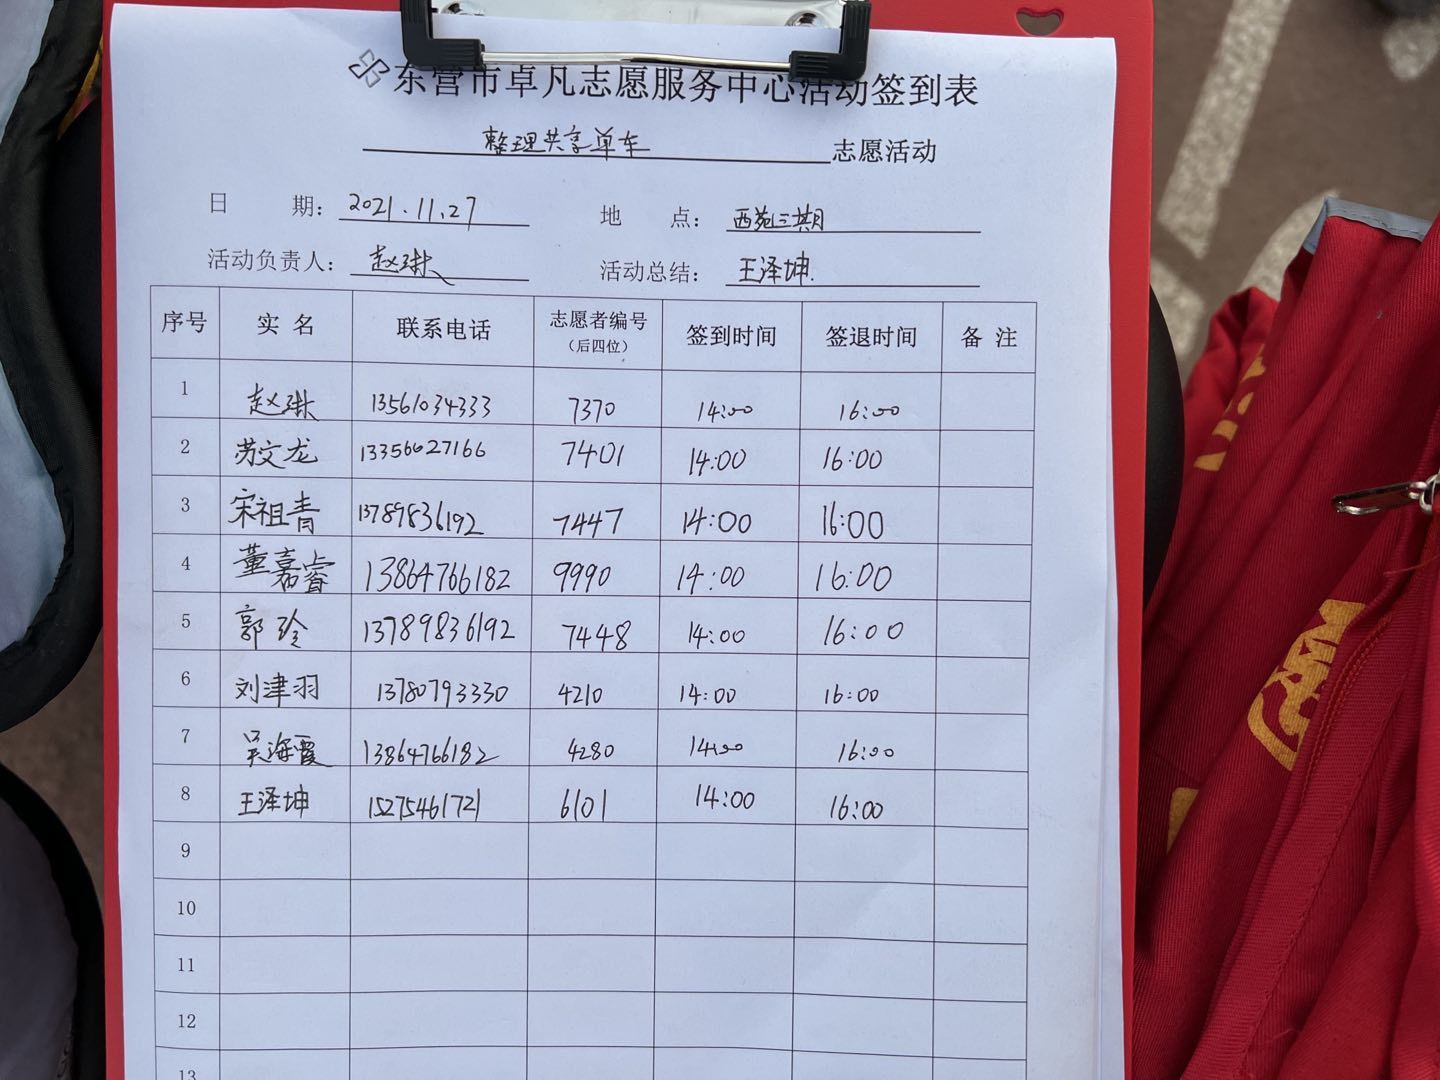 东营市卓凡志愿服务中心活动签到表
整理共享单车 志愿活动
日 期： 2021.11.27 地 点： 西苑三期
活动负责人： 赵琳 活动总结： 王泽坤.
序号 实 名 联系电话 志愿者编号（后四位） 签到时间 签退时间 备 注
1 赵琳 13561034333 7370 14:00 16:00
2 苏文龙 13356627166 7401 14:00 16:00
3 宋祖青 13789836192 7447 14:00 16:00
4 董嘉睿 13864766182 9990 14:00 16:00
5 郭玲 13789836192 7448 14:00 16:00
6 刘津羽 13780793330 4210 14:00 16:00
7 吴海霞 13864766182 4280 14:00 16:00
8 王泽坤 15275461721 6101 14:00 16:00
9
10
11
12
13